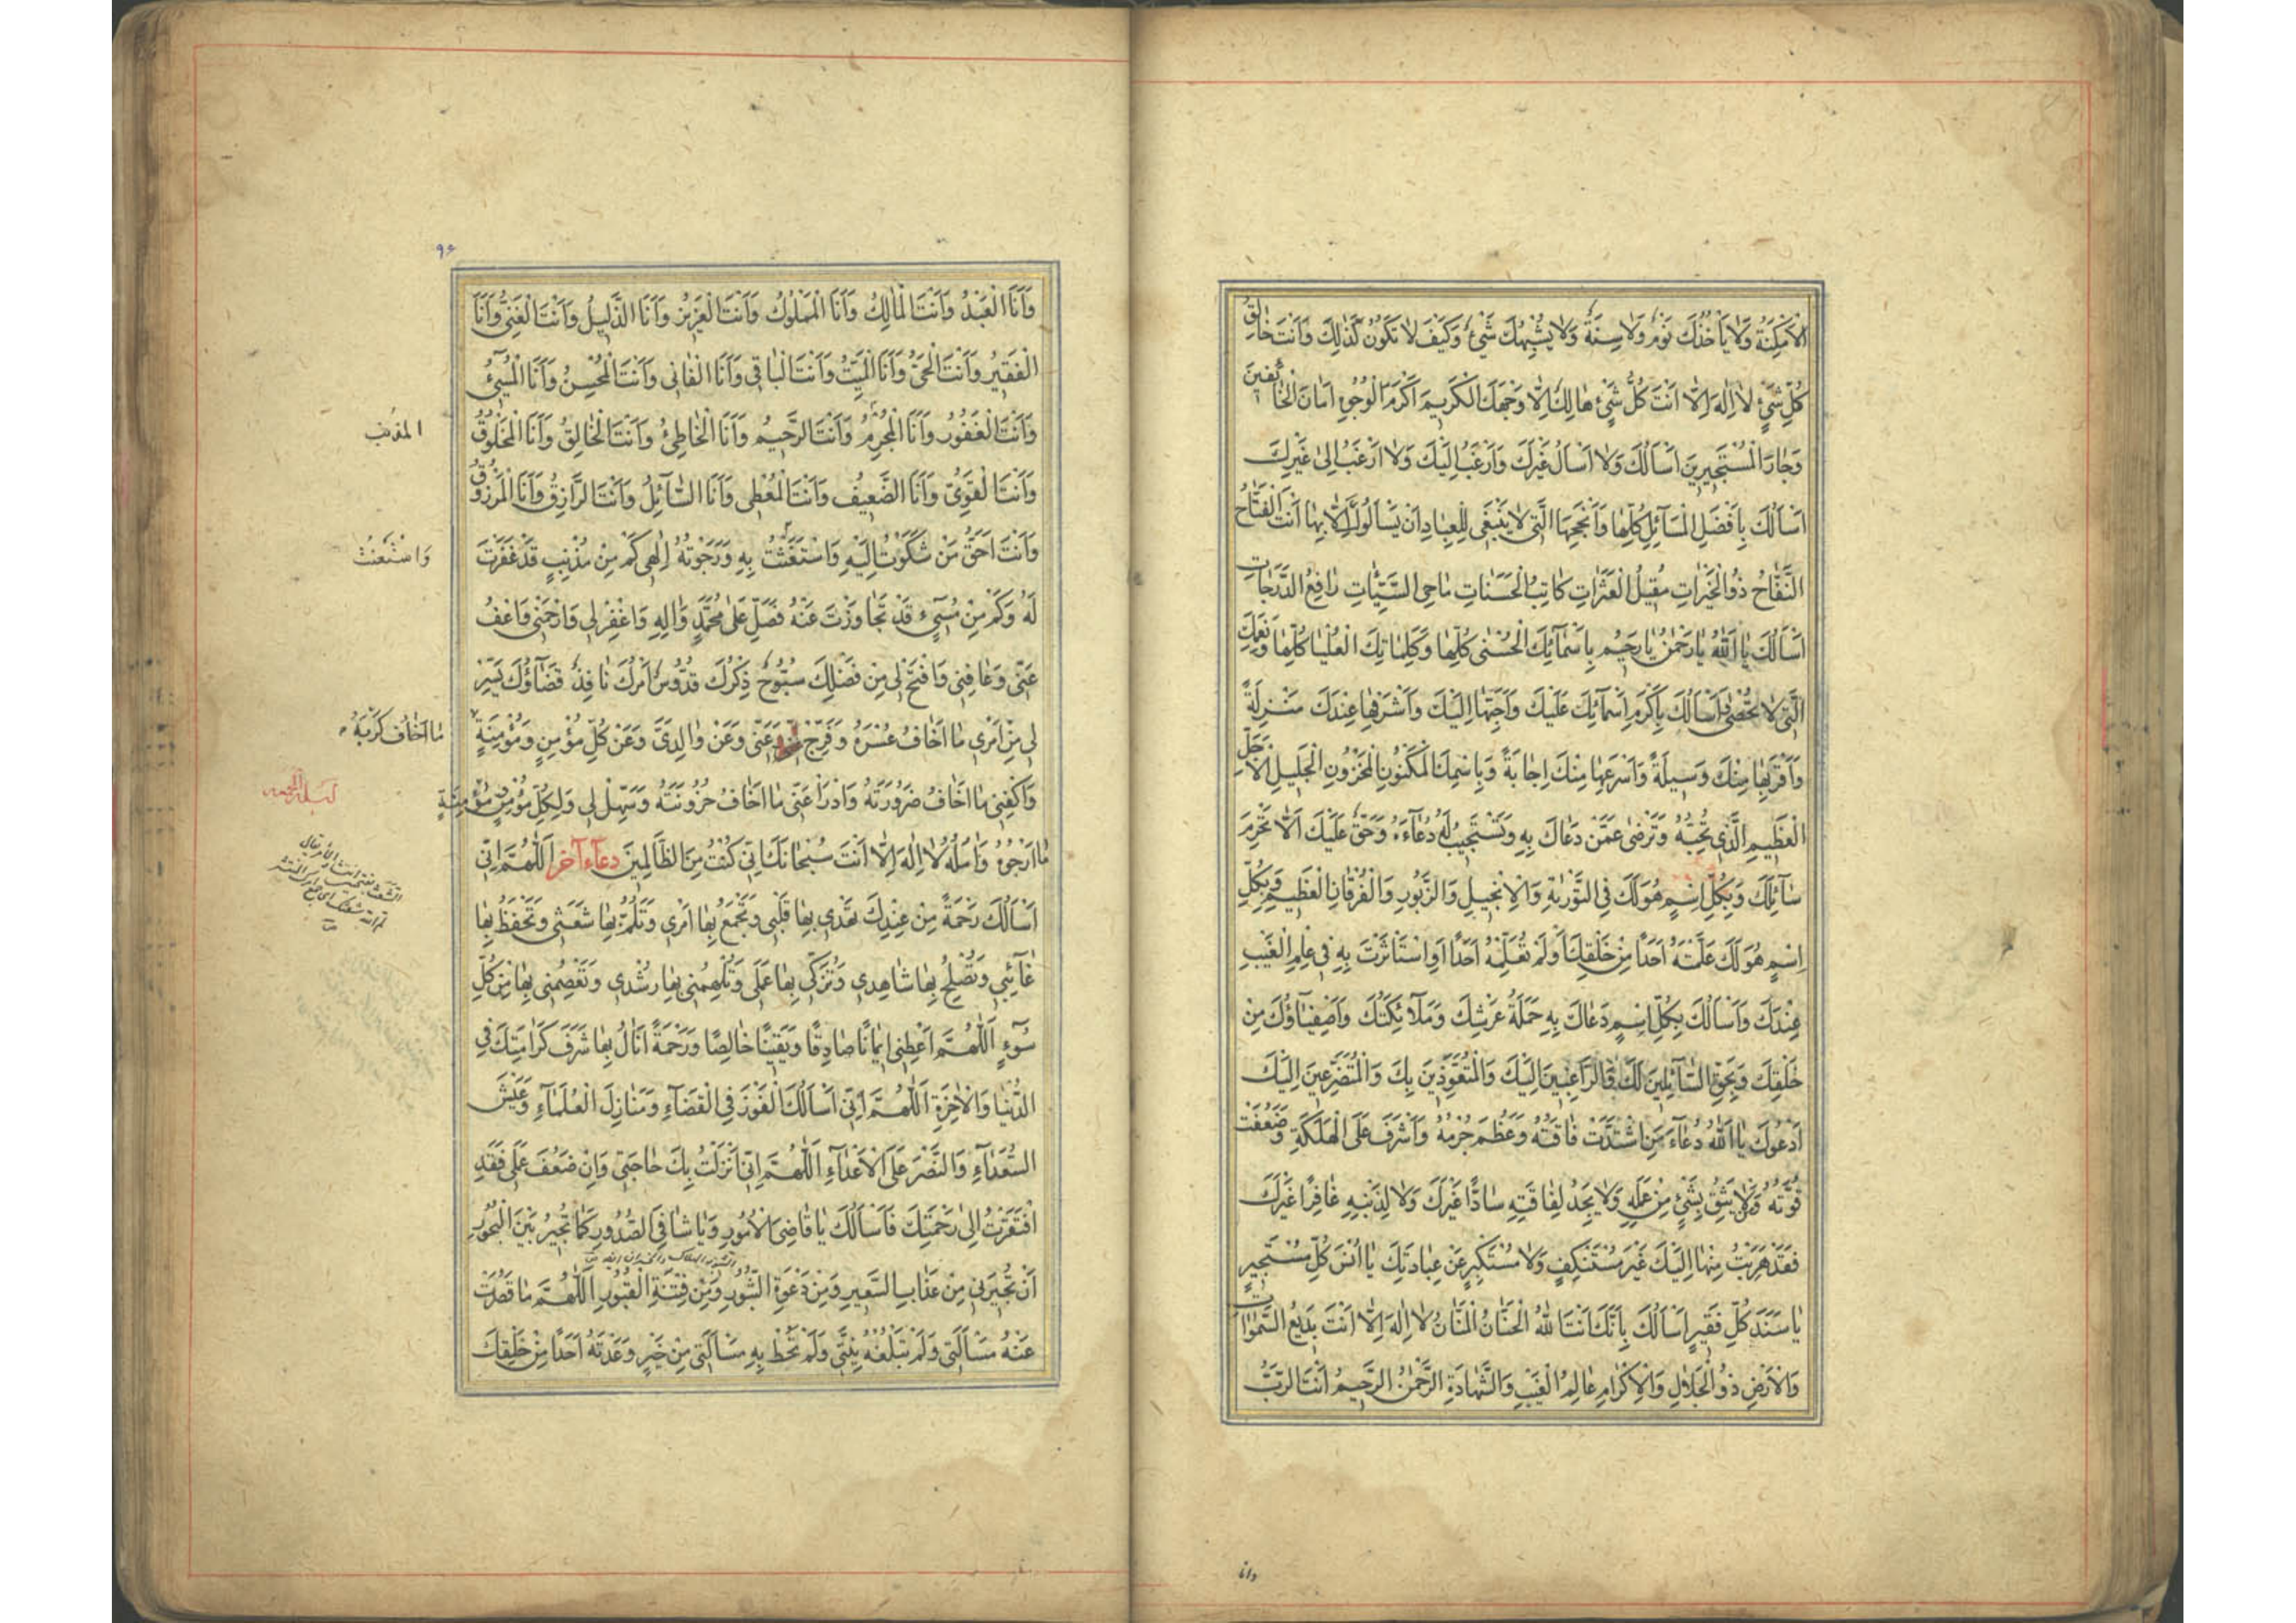 الْاَمْكِنَةُ وَلَا يَأْخُذُكَ نَوْمٌ وَلَا سِنَةٌ وَلَا يُشْبِهُكَ شَيْءٌ وَكَيْفَ لَا تَكُونُ كَذٰلِكَ وَاَنْتَ خَالِقُ
كُلِّ شَيْءٍ لَا اِلٰهَ اِلَّا اَنْتَ كُلُّ شَيْءٍ هَالِكٌ اِلَّا وَجْهَكَ الْكَرِيمَ اَكْرَمَ الْوُجُوهِ اَمَانَ الْخَائِفِينَ
وَجَارَ الْمُسْتَجِيرِينَ اَسْأَلُكَ وَلَا اَسْأَلُ غَيْرَكَ وَاَرْغَبُ اِلَيْكَ وَلَا اَرْغَبُ اِلٰى غَيْرِكَ
اَسْأَلُكَ بِاَفْضَلِ الْمَسَآئِلِ كُلِّهَا وَاَنْجَحِهَا الَّتِي لَا يَنْبَغِي لِلْعِبَادِ اَنْ يَسْأَلُوكَ اِلَّا بِهَا اَنْتَ الْفَتَّاحُ
النَّفَّاحُ ذُو الْخَيْرَاتِ مُقِيلُ الْعَثَرَاتِ كَاتِبُ الْحَسَنَاتِ مَاحِي السَّيِّئَاتِ رَافِعُ الدَّرَجَاتِ
اَسْأَلُكَ يَا اَللهُ يَا رَحْمٰنُ يَا رَحِيمُ بِاَسْمَآئِكَ الْحُسْنٰى كُلِّهَا وَكَلِمَاتِكَ الْعُلْيَا كُلِّهَا وَنِعَمِكَ
الَّتِي لَا تُحْصٰى وَاَسْأَلُكَ بِاَكْرَمِ اَسْمَآئِكَ عَلَيْكَ وَاَحَبِّهَا اِلَيْكَ وَاَشْرَفِهَا عِنْدَكَ مَنْزِلَةً
وَاَقْرَبِهَا مِنْكَ وَسِيلَةً وَاَسْرَعِهَا مِنْكَ اِجَابَةً وَبِاسْمِكَ الْمَكْنُونِ الْمَخْزُونِ الْجَلِيلِ الْاَجَلِّ
الْعَظِيمِ الَّذِي تُحِبُّهُ وَتَرْضٰى عَمَّنْ دَعَاكَ بِهِ وَتَسْتَجِيبُ لَهُ دُعَآءَهُ وَحَقٌّ عَلَيْكَ اَلَّا تَحْرِمَ
سَآئِلَكَ وَبِكُلِّ اسْمٍ هُوَ لَكَ فِي التَّوْرٰيةِ وَالْاِنْجِيلِ وَالزَّبُورِ وَالْفُرْقَانِ الْعَظِيمِ وَبِكُلِّ
اِسْمٍ هُوَ لَكَ عَلَّمْتَهُ اَحَدًا مِنْ خَلْقِكَ اَوْ لَمْ تُعَلِّمْهُ اَحَدًا اَوِ اسْتَأْثَرْتَ بِهِ فِي عِلْمِ الْغَيْبِ
عِنْدَكَ وَاَسْأَلُكَ بِكُلِّ اسْمٍ دَعَاكَ بِهِ حَمَلَةُ عَرْشِكَ وَمَلَآئِكَتُكَ وَاَصْفِيَآؤُكَ مِنْ
خَلْقِكَ وَبِحَقِّ السَّآئِلِينَ لَكَ وَالرَّاغِبِينَ اِلَيْكَ وَالْمُتَعَوِّذِينَ بِكَ وَالْمُتَضَرِّعِينَ اِلَيْكَ
اَدْعُوكَ يَا اَللهُ دُعَآءَ مَنِ اشْتَدَّتْ فَاقَتُهُ وَعَظُمَ جُرْمُهُ وَاَشْرَفَ عَلَى الْهَلَكَةِ وَضَعُفَتْ
قُوَّتُهُ وَمَنْ لَا يَثِقُ بِشَيْءٍ مِنْ عَمَلِهِ وَلَا يَجِدُ لِفَاقَتِهِ سَادًّا غَيْرَكَ وَلَا لِذَنْبِهِ غَافِرًا غَيْرَكَ
فَقَدْ هَرَبْتُ مِنْهَا اِلَيْكَ غَيْرَ مُسْتَنْكِفٍ وَلَا مُسْتَكْبِرٍ عَنْ عِبَادَتِكَ يَا اُنْسَ كُلِّ مُسْتَجِيرٍ
يَا سَنَدَ كُلِّ فَقِيرٍ اَسْأَلُكَ بِاَنَّكَ اَنْتَ اللهُ الْحَنَّانُ الْمَنَّانُ لَا اِلٰهَ اِلَّا اَنْتَ بَدِيعُ السَّمٰوَاتِ
وَالْاَرْضِ ذُو الْجَلَالِ وَالْاِكْرَامِ عَالِمُ الْغَيْبِ وَالشَّهَادَةِ الرَّحْمٰنُ الرَّحِيمُ اَنْتَ الرَّبُّ
وانا
۹۶
وَاَنَا الْعَبْدُ وَاَنْتَ الْمَالِكُ وَاَنَا الْمَمْلُوكُ وَاَنْتَ الْعَزِيزُ وَاَنَا الذَّلِيلُ وَاَنْتَ الْغَنِيُّ وَاَنَا
الْفَقِيرُ وَاَنْتَ الْحَيُّ وَاَنَا الْمَيِّتُ وَاَنْتَ الْبَاقِي وَاَنَا الْفَانِي وَاَنْتَ الْمُحْسِنُ وَاَنَا الْمُسِيءُ
وَاَنْتَ الْغَفُورُ وَاَنَا الْمُجْرِمُ وَاَنْتَ الرَّحِيمُ وَاَنَا الْخَاطِئُ وَاَنْتَ الْخَالِقُ وَاَنَا الْمَخْلُوقُ
المذنب
وَاَنْتَ الْقَوِيُّ وَاَنَا الضَّعِيفُ وَاَنْتَ الْمُعْطِي وَاَنَا السَّآئِلُ وَاَنْتَ الرَّازِقُ وَاَنَا الْمَرْزُوقُ
وَاَنْتَ اَحَقُّ مَنْ شَكَوْتُ اِلَيْهِ وَاسْتَغَثْتُ بِهِ وَرَجَوْتُهُ اِلٰهِي كَمْ مِنْ مُذْنِبٍ قَدْ غَفَرْتَ
وَاسْتَعَنْتُ
لَهُ وَكَمْ مِنْ مُسِيءٍ قَدْ تَجَاوَزْتَ عَنْهُ فَصَلِّ عَلٰى مُحَمَّدٍ وَاٰلِهِ وَاغْفِرْ لِي وَارْحَمْنِي وَاعْفُ
عَنِّي وَعَافِنِي وَافْتَحْ لِي مِنْ فَضْلِكَ سُبُّوحٌ ذِكْرُكَ قُدُّوسٌ اَمْرُكَ نَافِذٌ قَضَآؤُكَ يَسِّرْ
لِي مِنْ اَمْرِي مَا اَخَافُ عُسْرَهُ وَفَرِّجْ عَنِّي وَعَنْ وَالِدَيَّ وَعَنْ كُلِّ مُؤْمِنٍ وَمُؤْمِنَةٍ
مَا اَخَافُ كَرْبَهُ
وَاكْفِنِي مَا اَخَافُ ضَرُورَتَهُ وَادْرَأْ عَنِّي مَا اَخَافُ حُزُونَتَهُ وَسَهِّلْ لِي وَلِكُلِّ مُؤْمِنٍ وَمُؤْمِنَةٍ
ليلة الجمعه
مَا اَرْجُوهُ وَاٰمُلُهُ لَا اِلٰهَ اِلَّا اَنْتَ سُبْحَانَكَ اِنِّي كُنْتُ مِنَ الظَّالِمِينَ دعاء آخر اَللّٰهُمَّ اِنِّي
اَسْأَلُكَ رَحْمَةً مِنْ عِنْدِكَ تَهْدِي بِهَا قَلْبِي وَتَجْمَعُ بِهَا اَمْرِي وَتَلُمُّ بِهَا شَعَثِي وَتَحْفَظُ بِهَا
غَآئِبِي وَتُصْلِحُ بِهَا شَاهِدِي وَتُزَكِّي بِهَا عَمَلِي وَتُلْهِمُنِي بِهَا رُشْدِي وَتَعْصِمُنِي بِهَا مِنْ كُلِّ
سُوٓءٍ اَللّٰهُمَّ اَعْطِنِي اِيمَانًا صَادِقًا وَيَقِينًا خَالِصًا وَرَحْمَةً اَنَالُ بِهَا شَرَفَ كَرَامَتِكَ فِي
الدُّنْيَا وَالْاٰخِرَةِ اَللّٰهُمَّ اِنِّي اَسْأَلُكَ الْفَوْزَ فِي الْقَضَآءِ وَمَنَازِلَ الْعُلَمَآءِ وَعَيْشَ
السُّعَدَآءِ وَالنَّصْرَ عَلَى الْاَعْدَآءِ اَللّٰهُمَّ اِنِّي اَنْزَلْتُ بِكَ حَاجَتِي وَاِنْ ضَعُفَ عَمَلِي فَقَدِ
افْتَقَرْتُ اِلٰى رَحْمَتِكَ فَاَسْأَلُكَ يَا قَاضِيَ الْاُمُورِ وَيَا شَافِيَ الصُّدُورِ كَمَا تُجِيرُ بَيْنَ الْبُحُورِ
اَنْ تُجِيرَنِي مِنْ عَذَابِ السَّعِيرِ وَمِنْ دَعْوَةِ الثُّبُورِ وَمِنْ فِتْنَةِ الْقُبُورِ اَللّٰهُمَّ مَا قَصُرَتْ
عَنْهُ مَسْأَلَتِي وَلَمْ تَبْلُغْهُ نِيَّتِي وَلَمْ تُحِطْ بِهِ مَسْأَلَتِي مِنْ خَيْرٍ وَعَدْتَهُ اَحَدًا مِنْ خَلْقِكَ